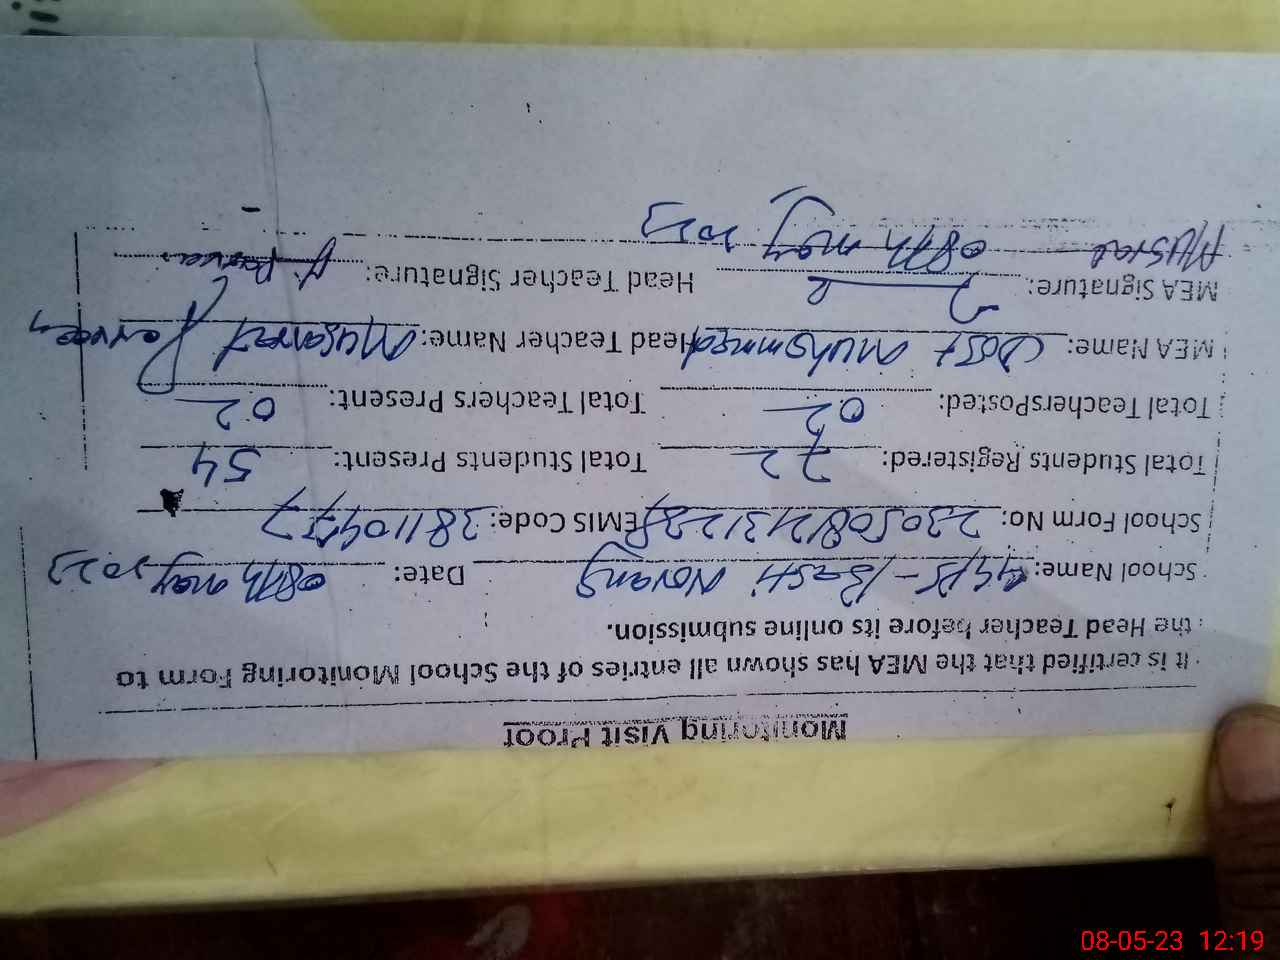 Monitoring Visit Proof
It is certified that the MEA has shown all entries of the School Monitoring Form to
the Head Teacher before its online submission.
School Name: GGPS - Basti Norang Date: 08th may 2023
School Form No: EMIS Code:
Total Students Registered: 72 Total Students Present: 54
Total TeachersPosted: 02 Total Teachers Present: 02
MEA Name: Dost Muhammad Head Teacher Name: Musarrat Parveen
MEA Signature: Head Teacher Signature:
08th may 2023
08-05-23 12:19